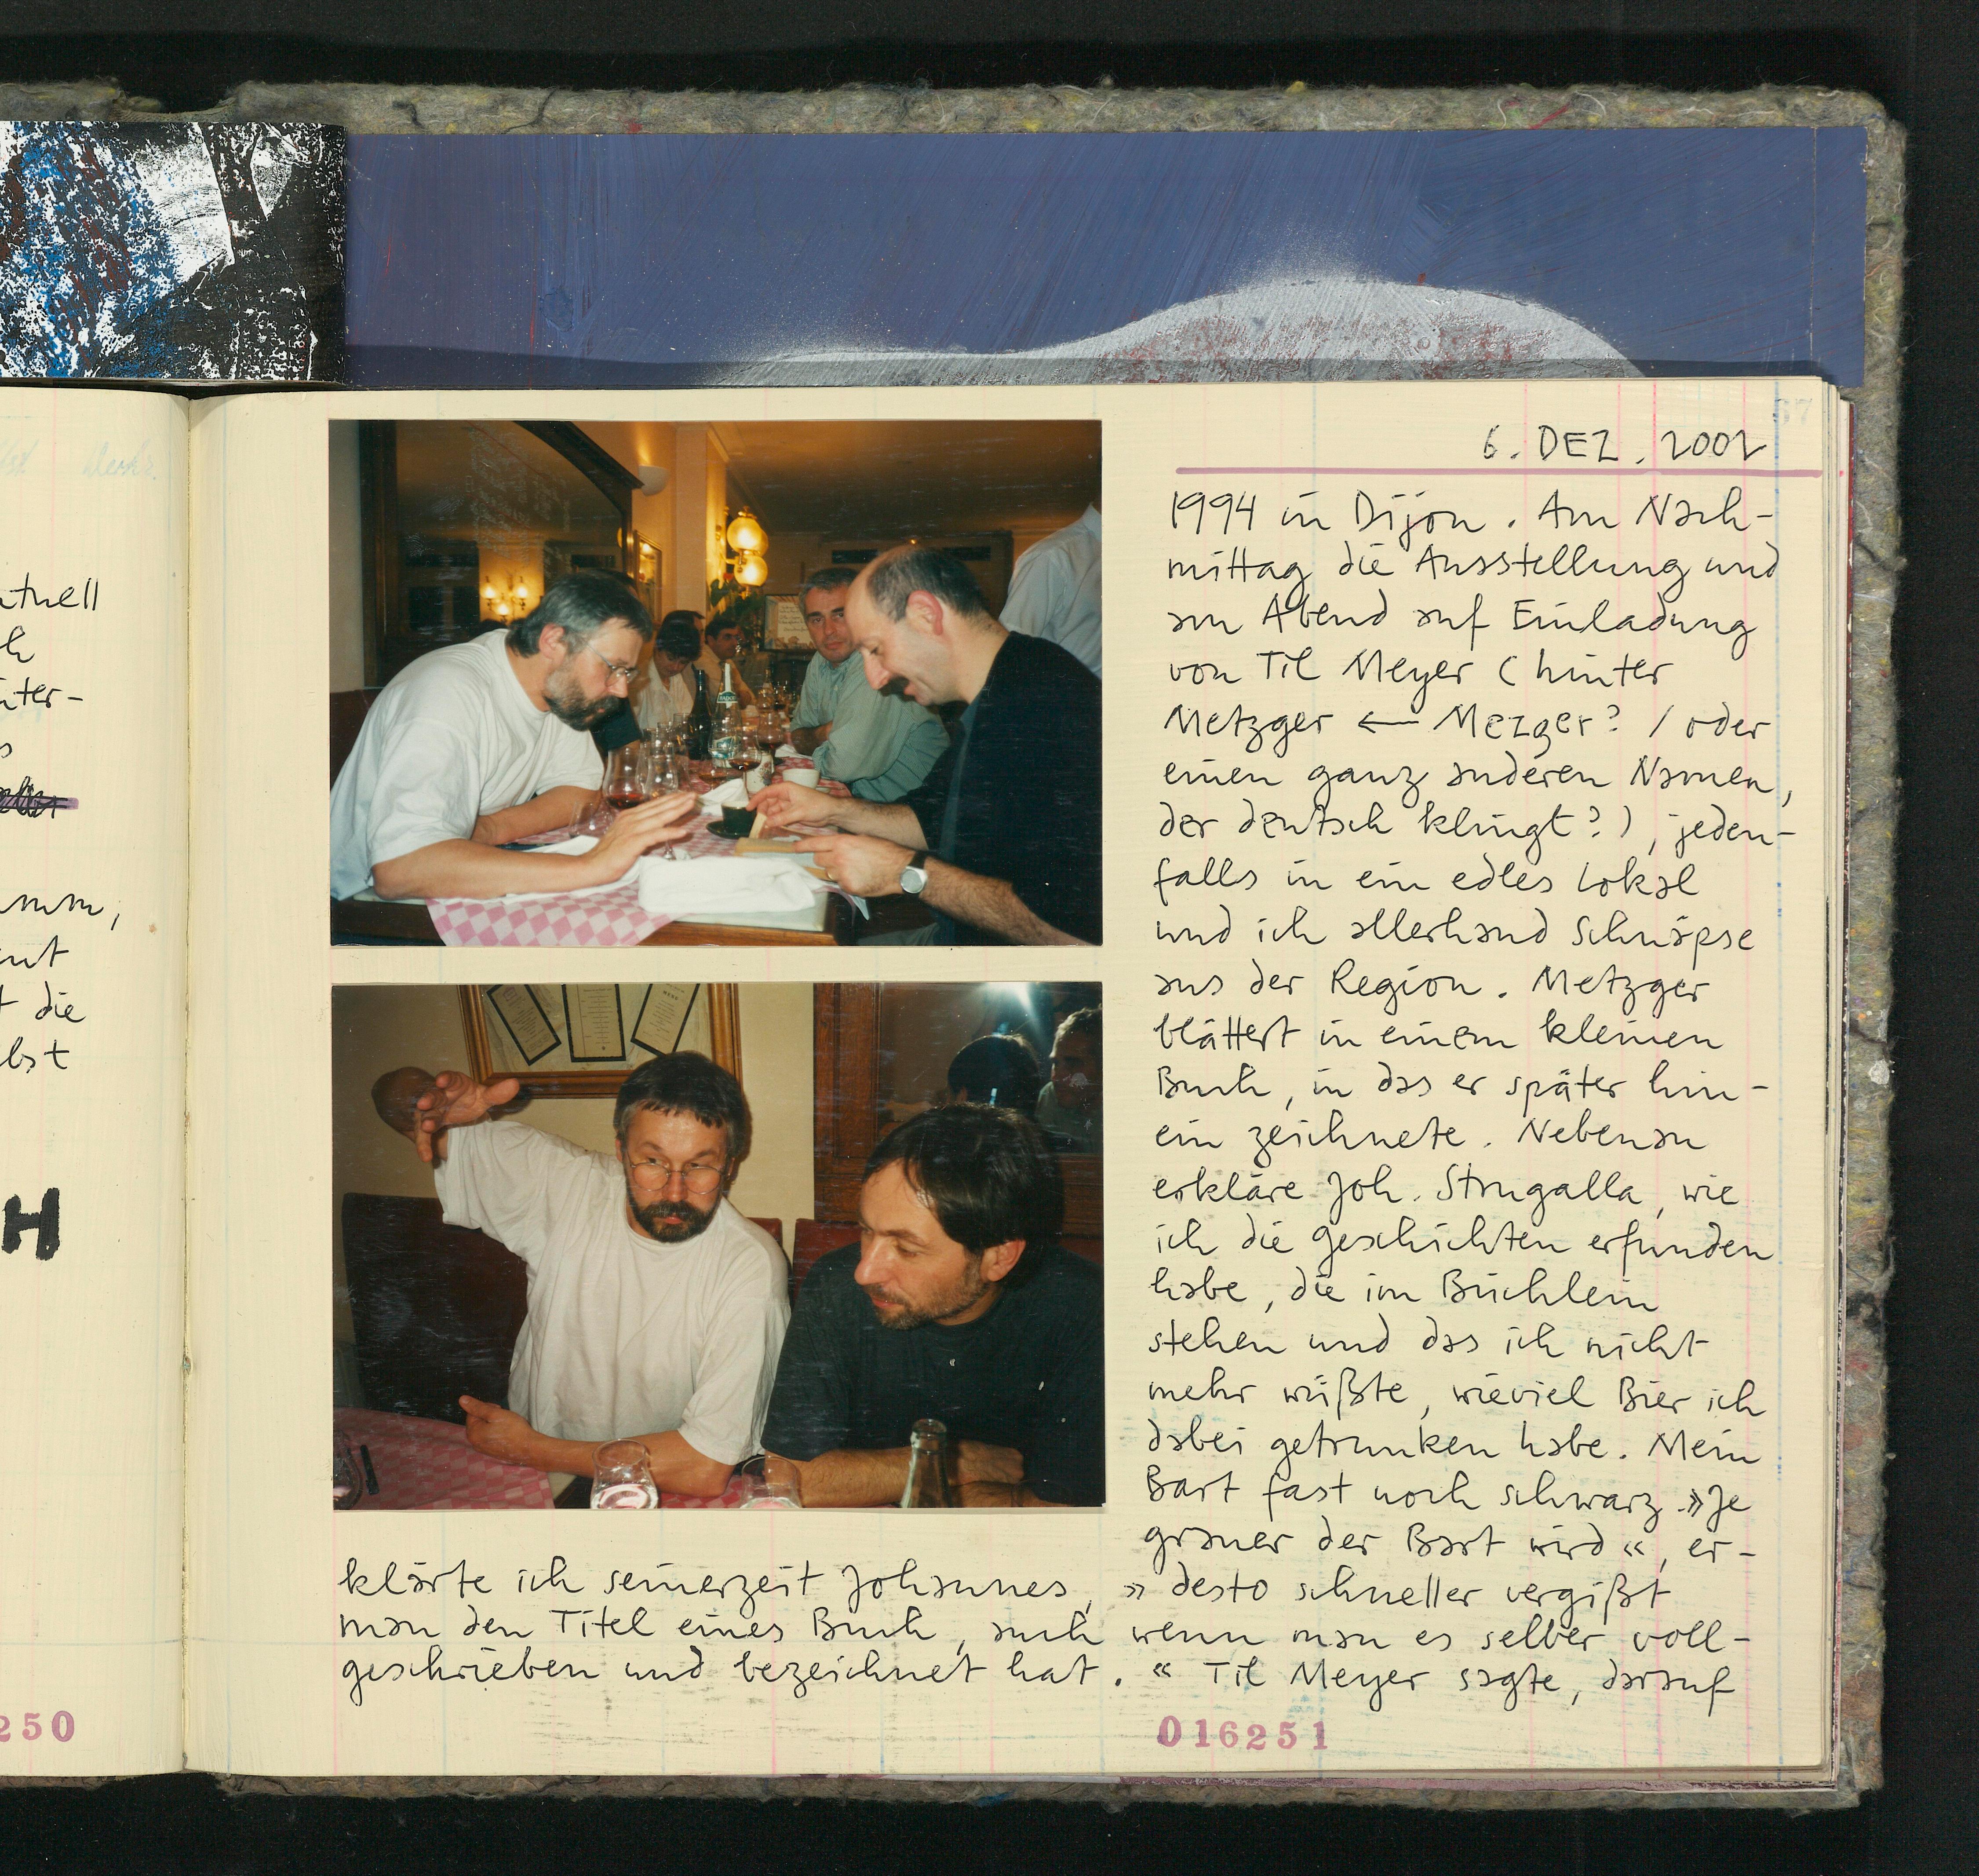 6. DEZ. 2002
1994 in Dijon. Am Nach-
mittag die Ausstellung und
am Abend auf Einladung
von Til Meyer (hinter
Metzger ← Mezger? / oder
einen ganz anderen Namen,
der deutsch klingt?), jeden-
falls in ein edles Lokal
und ich allerhand Schnäpse
aus der Region. Metzger
blättert in einem kleinen
Buch, in das er später hin-
ein zeichnete. Nebenan
erkläre Joh. Strugalla, wie
ich die Geschichten erfunden
habe, die im Büchlein
stehen und das ich nicht
mehr wüßte, wieviel Bier ich
dabei getrunken habe. Mein
Bart fast noch schwarz. »Je
grauer der Bart wird«, er-
klärte ich seinerzeit Johannes, »desto schneller vergißt
man den Titel eines Buch, auch wenn man es selber voll-
geschrieben und bezeichnet hat.« Til Meyer sagte, darauf
016251
57
ntuell
nter-
s
t die
lbst
H
250